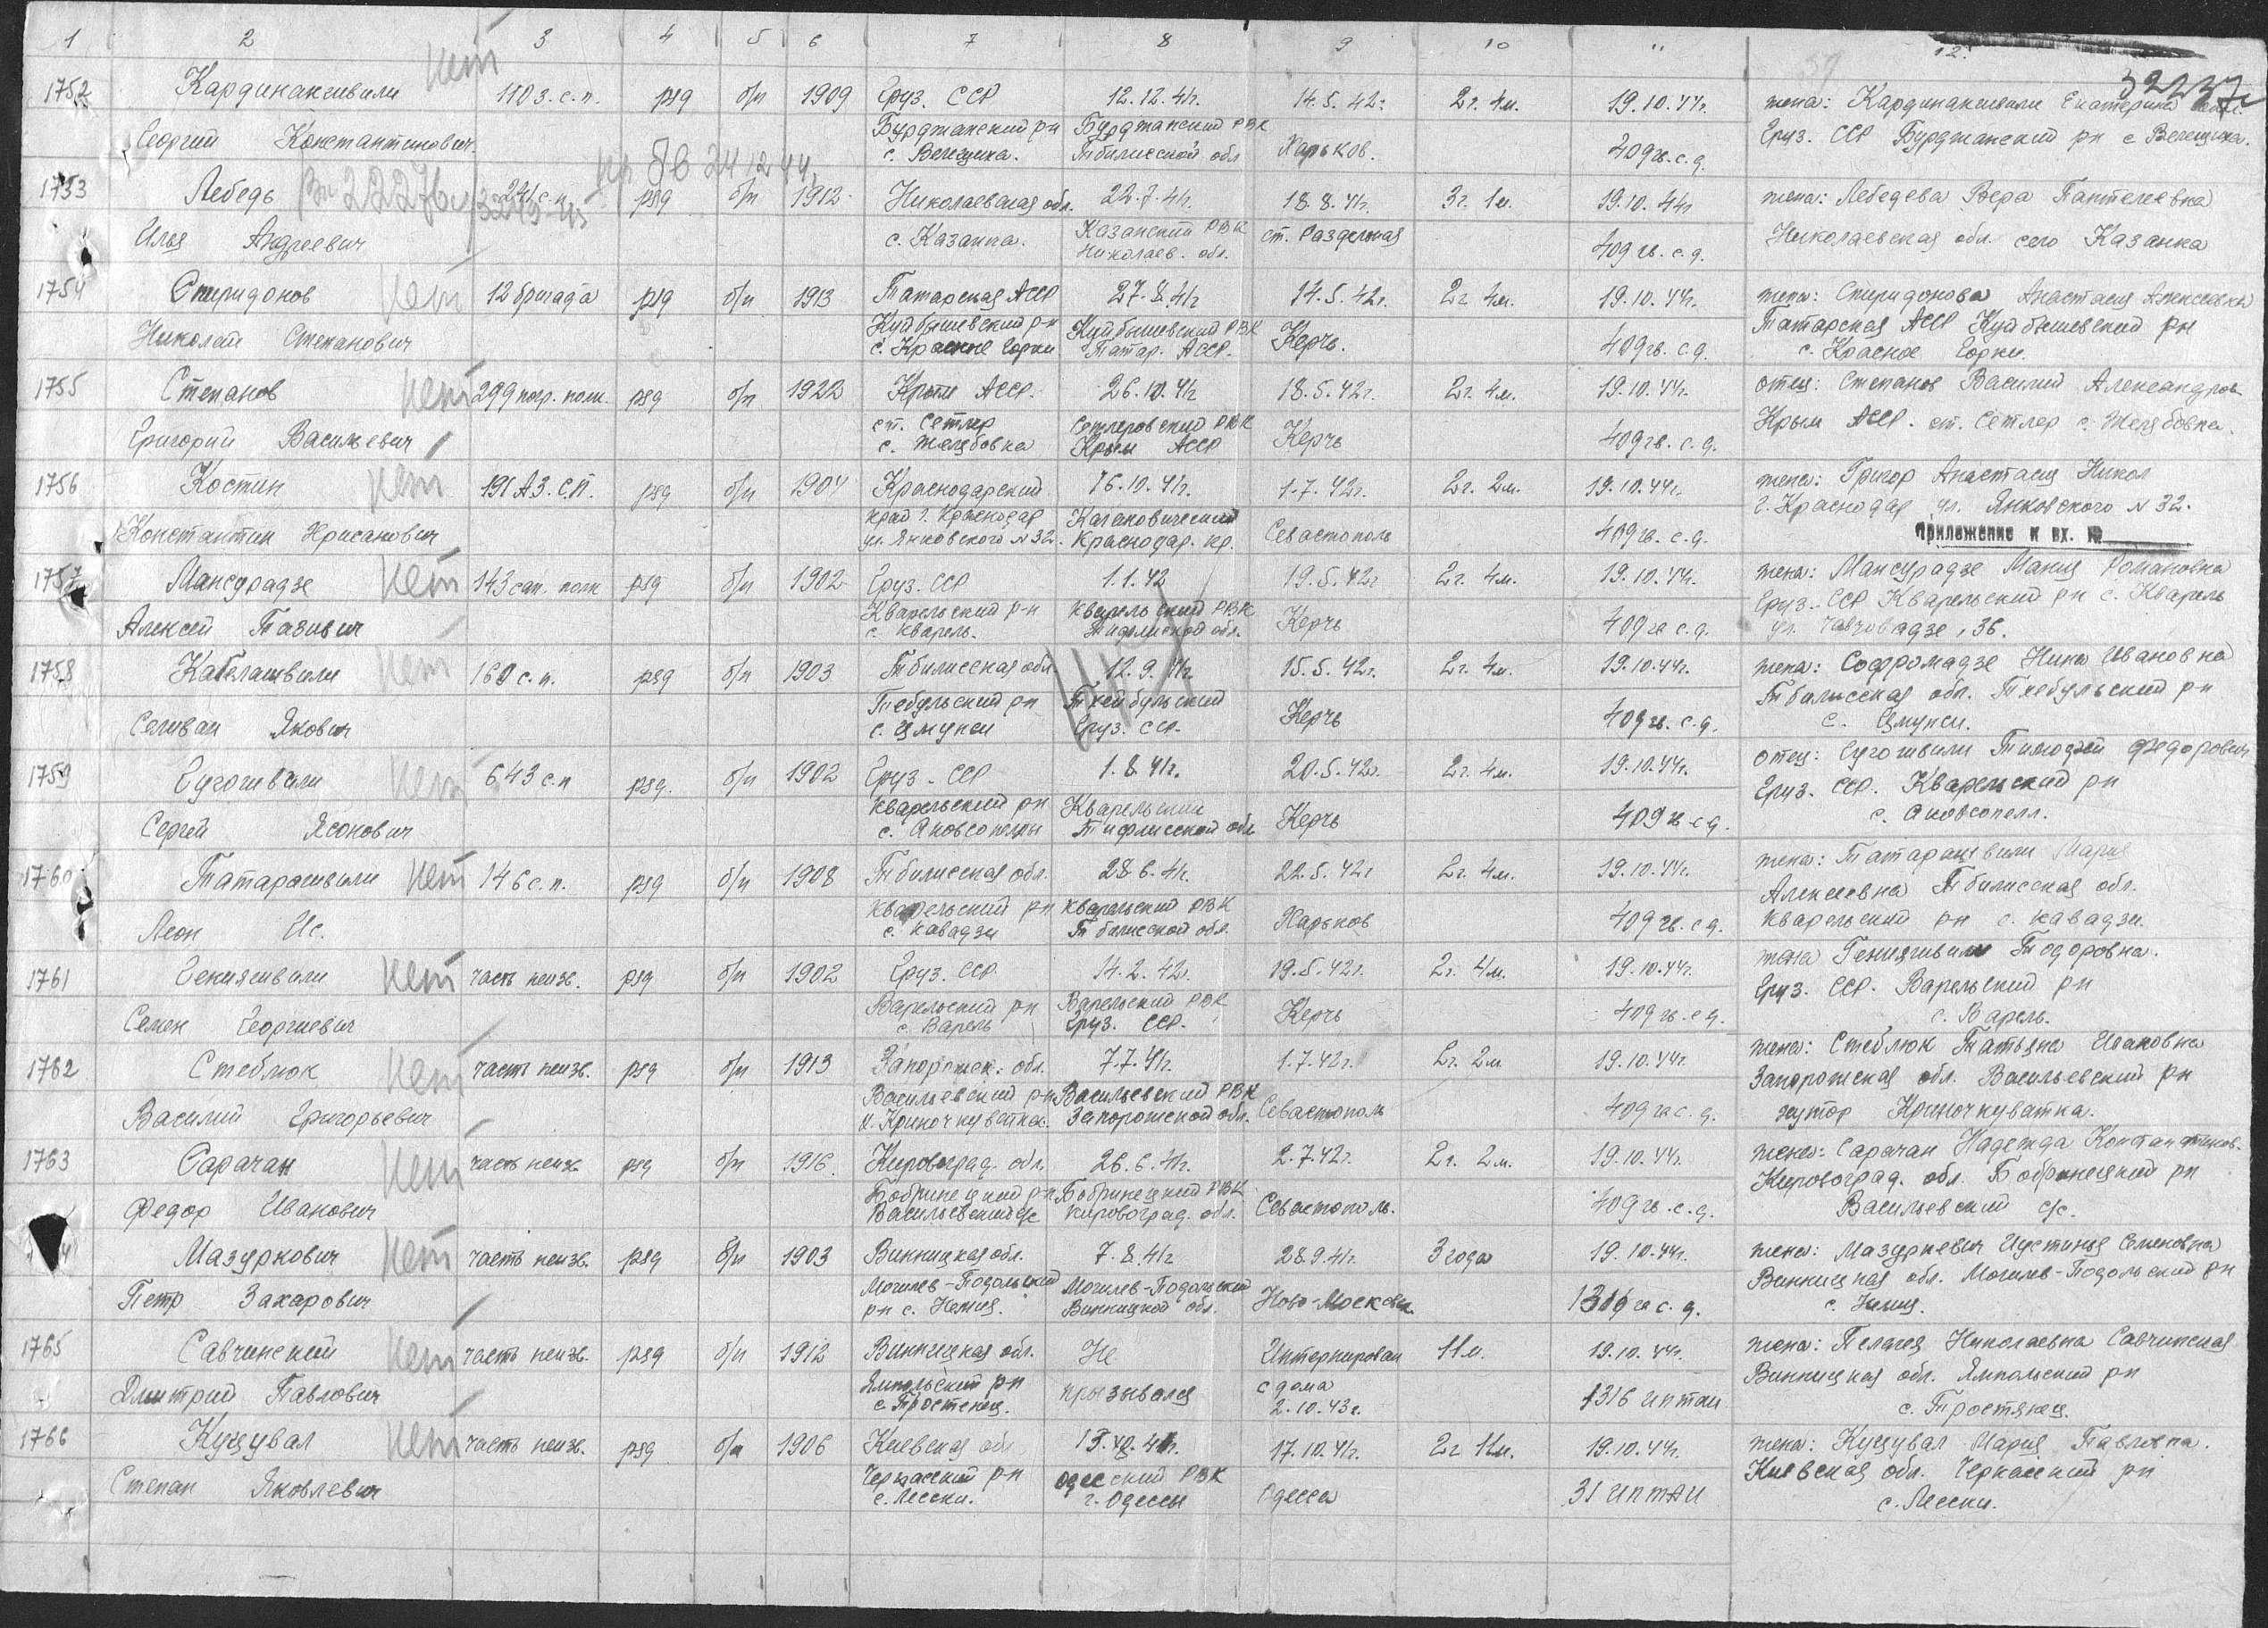 1 2 3 4 5 6 7 8 9 10 11 12.
32237с
1752 Кардинакивили нет 1103. с. п. ряд б/п 1909 Груз. ССР 12.12.41г. 14.5.42г. 2г. 4м. 19.10.44г. жена: Кардинакивили Екатерина
Георгий Константинович Бурджанский рн Бурджанский РВК Харьков. 409 гв. с. д. Груз. ССР Бурджанский рн с Вениука.
с. Вениука. Тбилисской обл
1753 Лебедь 241 с. п. ряд б/п 1912 Николаевская обл. 22.7.41г. 18.8.41г. 3г. 1м. 19.10.44г жена: Лебедева Вера Пантелеевна
Илья Андреевич с. Казанка. Казанский РВК ст. Раздельная 409 гв. с. д. Николаевская обл. село Казанка
Николаев. обл.
1754 Спиридонов нет 12 бригада ряд б/п 1913 Татарская АССР 27.8.41г 14.5.42г. 2г. 4м. 19.10.44г. жена: Спиридонова Анастасия Алексеевна
Николай Степанович Куйбышевский р-н Куйбышевский РВК Керчь. 409 гв. с. д. Татарская АССР Куйбышевский рн
с. Красные Горки Татар. АССР. с. Красное Горки.
1755 Степанов нет 299 погр. полк. ряд б/п 1922 Крым АССР. 26.10.41г 18.5.42г. 2г. 4м. 19.10.44г. отец: Степанов Василий Александров
Григорий Васильевич ст. Сетлер Сетлеровский РВК Керчь 409 гв. с. д. Крым АССР. ст. Сетлер с. Желябовка.
с. Желябовка Крым АССР
1756 Костин нет 191 АЗ. С.П. ряд б/п 1904 Краснодарский 16.10.41г. 1.7.42г. 2г. 2м. 19.10.44г. жена: Григор Анастасия Никол
Константин Хрисанович край г. Краснодар Кагановический Севастополь 409 гв. с. д. г. Краснодар ул. Янковского N 32.
ул. Янковского N 32. Краснодар. кр. Приложение к вх. №
1757 Мансурадзе нет 143 сап. полк ряд б/п 1902 Груз. ССР 1.1.42 19.5.42г 2г. 4м. 19.10.44г. жена: Мансурадзе Романовна
Алексей Кварельский р-н Кварельский РВК Керчь 409 гв с. д. Груз. ССР Кварельский рн с. Кварель
с. Кварель. обл. ул. , 36.
1758 Кабелашвили нет 160 с. п. ряд б/п 1903 Тбилисская обл. 12.9.41г. 15.5.42г. 2г. 4м. 19.10.44г. жена: Софромадзе Нина Ивановна
Селиван Якович Тебульский рн Ткейбульский Керчь 409 гв. с. д. Тбилисская обл. Ткебульский рн
с. Цмунси Груз. ССР. с. Цмунси.
1759 Гугошвили нет 643 с. п ряд. б/п 1902 Груз. ССР 1.8.41г. 20.5.42г. 2г. 4м. 19.10.44г. отец: Гугошвили Тимофей Федорович
Сергей Ясонович Кварельский рн Кварельский Керчь 409 гв с д. Груз. ССР. Кварельский рн
с. Тифлисской обл
1760 Татарашвили нет 146 с. п. ряд б/п 1908 Тбилисская обл. 28.6.41г. 22.5.42г 2г. 4м. 19.10.44г. жена: Татарашвили Мария
Леон Ис. Кварельский рн Кварельский РВК Харьков 409 гв. с д. Алексеевна Тбилисская обл.
с. Кавадзи Тбилисской обл. Кварельский рн с. Кавадзи.
1761 Гениашвили нет часть неизв. ряд б/п 1902 Груз. ССР 14.2.42г. 19.5.42г. 2г. 4м. 19.10.44г. жена Гениашвили Тодоровна.
Семен Георгиевич Варельский рн Варельский РВК Керчь 409 гв. с д. Груз. ССР. Варельский рн
с. Варель Груз. ССР. с. Варель.
1762 Стеблюк нет часть неизв. ряд б/п 1913 Запорожск. обл. 7.7.41г. 1.7.42г. 2г. 2м 19.10.44г. жена: Стеблюк Татьяна Ивановна
Василий Григорьевич Васильевский рн Васильевский РВК Севастополь 409 гв с. д. Запорожская обл. Васильевский рн
х. Криночкуватка. Запорожской обл. хутор Криночкуватка.
1763 Сарачан нет часть неизв ряд б/п 1916. Кировоград. обл. 26.6.41г. 2.7.42г. 2г. 2м. 19.10.44г. жена: Сарачан Надежда Константинов.
Федор Иванович Бобринецкий рн Бобринецкий РВК Севастополь. 409 гв. с. д. Кировоград. обл. Бобринецкий рн
Васильевский с/с Кировоград. обл. Васильевский с/с.
Мазуркович нет часть неизв. ряд б/п 1903 Винницкая обл. 7.8.41г 28.9.41г. 3 года 19.10.44г. жена: Мазуркевич Иустинья Семеновна
Петр Захарович Могилев-Подольский Могилев-Подольский Ново-Московск 1316 гв с. д. Винницкая обл. Могилев-Подольский рн
рн с. Немия. Винницкой обл. с. Немия.
1765 Савчинский нет часть неизв. ряд б/п 1912 Винницкая обл. Не Интернирован 11м. 19.10.44г. жена: Пелагея Николаевна Савчинская
Дмитрий Павлович Ямпольский рн призывался с дома 1316 иптап Винницкая обл. Ямпольский рн
с. Тростянец. 2.10.43г. с. Тростянец.
1766 Куцувал нет часть неизв. ряд б/п 1906 Киевская обл 17.10.41г. 2г 11м. 19.10.44г. жена: Куцувал Мария Павловна.
Степан Яковлевич Черкасский р-н Одесский РВК Одесса 31 ИПТАП Киевская обл. Черкасский рн
с. Лески. г. Одессы с. Лески.